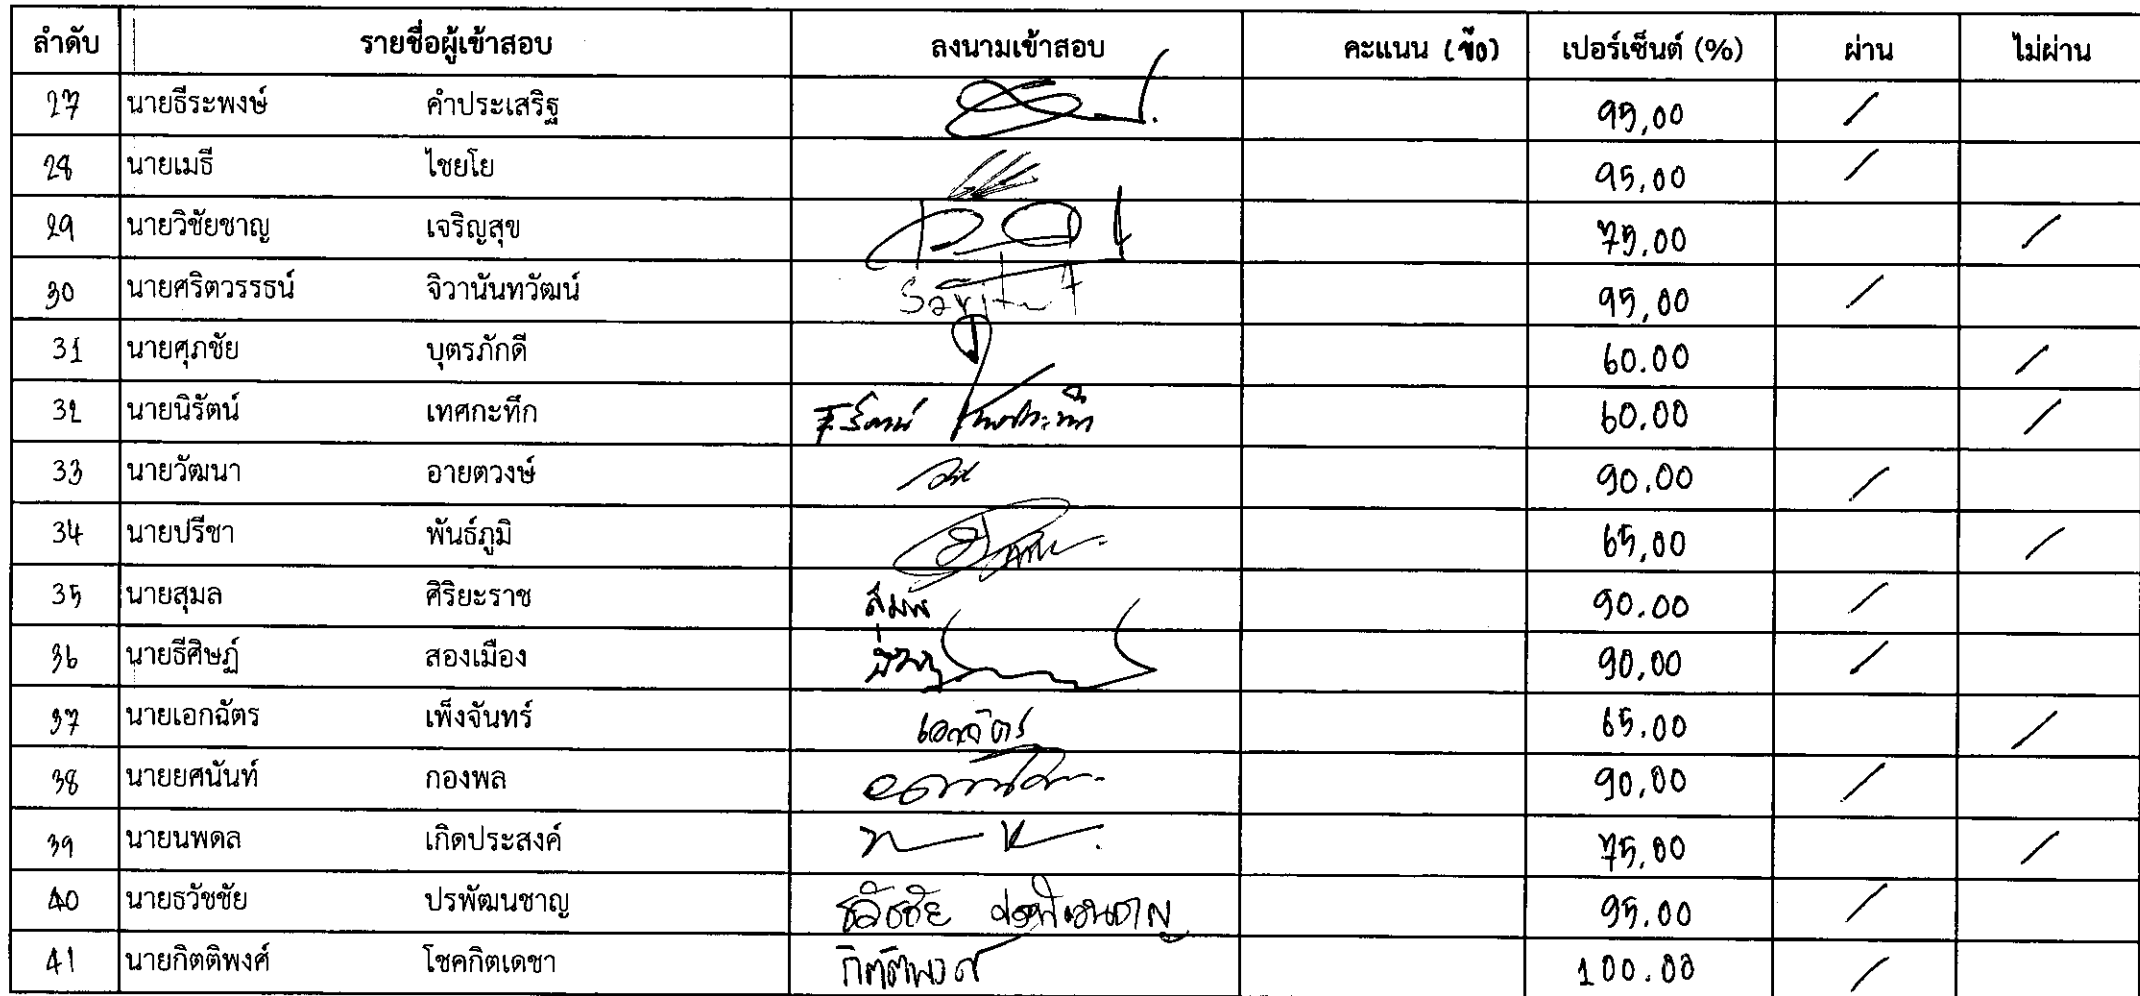 ลำดับ รายชื่อผู้เข้าสอบ ลงนามเข้าสอบ คะแนน (ข้อ) เปอร์เซ็นต์ (%) ผ่าน ไม่ผ่าน
27 นายธีระพงษ์ คำประเสริฐ 95.00 /
28 นายเมธี ไชยโย 95.00 /
29 นายวิชัยชาญ เจริญสุข 75.00 /
30 นายศริตวรรธน์ จิวานันทวัฒน์ 95.00 /
31 นายศุภชัย บุตรภักดี 60.00 /
32 นายนิรัตน์ เทศกะทึก 60.00 /
33 นายวัฒนา อายตวงษ์ 90.00 /
34 นายปรีชา พันธ์ภูมิ 65.00 /
35 นายสุมล ศิริยะราช 90.00 /
36 นายธีศิษฏ์ สองเมือง 90.00 /
37 นายเอกฉัตร เพ็งจันทร์ เอกฉัตร 65.00 /
38 นายยศนันท์ กองพล 90.00 /
39 นายนพดล เกิดประสงค์ 75.00 /
40 นายธวัชชัย ปรพัฒนชาญ ธวัชชัย ปรพัฒนชาญ 95.00 /
41 นายกิตติพงศ์ โชคกิตเดชา กิตติพงศ์ 100.00 /